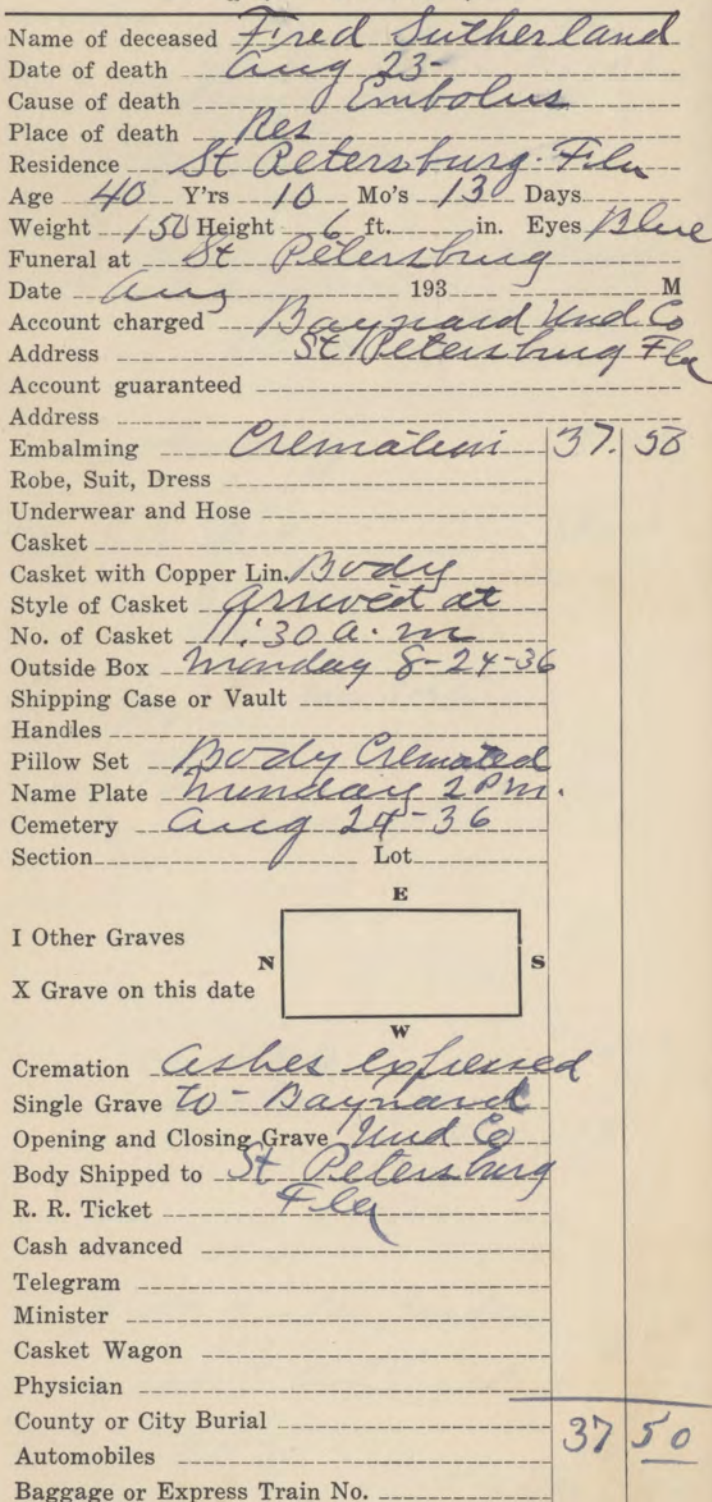 Name of deceased Fred Sutherland
Date of death Aug 23-
Cause of death Embolus
Place of death Res
Residence St Petersburg. Fla
Age 40 Y'rs 10 Mo's 13 Days
Weight 150 Height 6 ft. in. Eyes Blue
Funeral at St Petersburg
Date Aug 193 M
Account charged Baynard Und Co
Address St Petersburg Fla
Account guaranteed
Address
Embalming Cremation 37. 50
Robe, Suit, Dress
Underwear and Hose
Casket
Casket with Copper Lin. Body
Style of Casket arrived at
No. of Casket 11:30 a.m
Outside Box Monday 8-24-36
Shipping Case or Vault
Handles
Pillow Set Body Cremated
Name Plate Munday 2 Pm.
Cemetery Aug 24-36
Section Lot
E
I Other Graves
N S
X Grave on this date
W
Cremation Ashes expressed
Single Grave to - Baynard
Opening and Closing Grave Und Co
Body Shipped to St Petersburg
R. R. Ticket Fla
Cash advanced
Telegram
Minister
Casket Wagon
Physician
County or City Burial 37 50
Automobiles
Baggage or Express Train No.